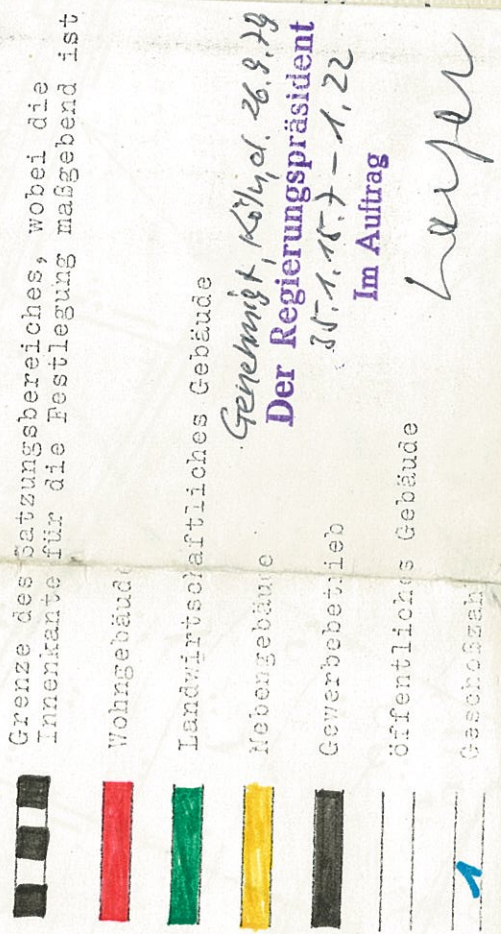 Grenze des Satzungsbereiches, wobei die
Innenkante für die Festlegung maßgebend ist
Wohngebäude
Landwirtschaftliches Gebäude
Nebengebäude
Gewerbebetrieb
öffentliches Gebäude
1 Geschoßzahl
Genehmigt, Köln, d. 26.9.79
Der Regierungspräsident
35.1.15.7-1.22
Im Auftrag